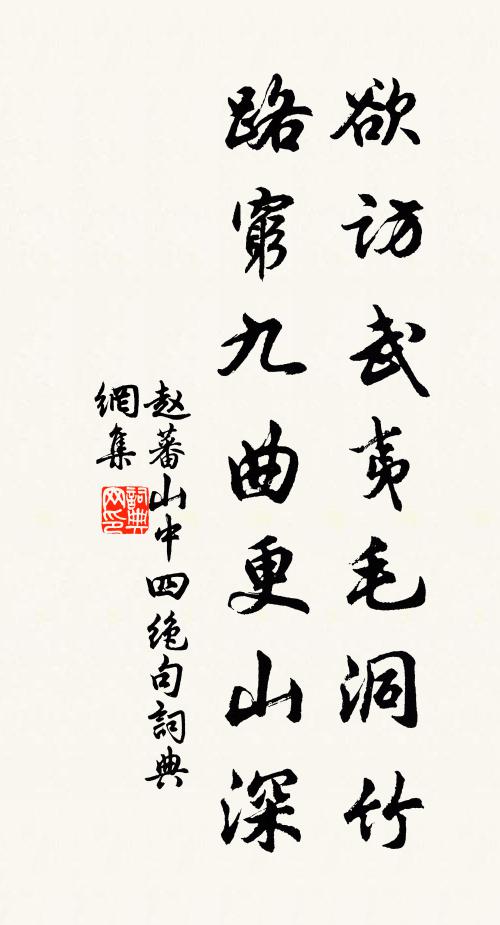 欲访武夷毛洞竹
路窮九曲更山深
赵蕃山中四绝句詞典
網集
詞典
网印